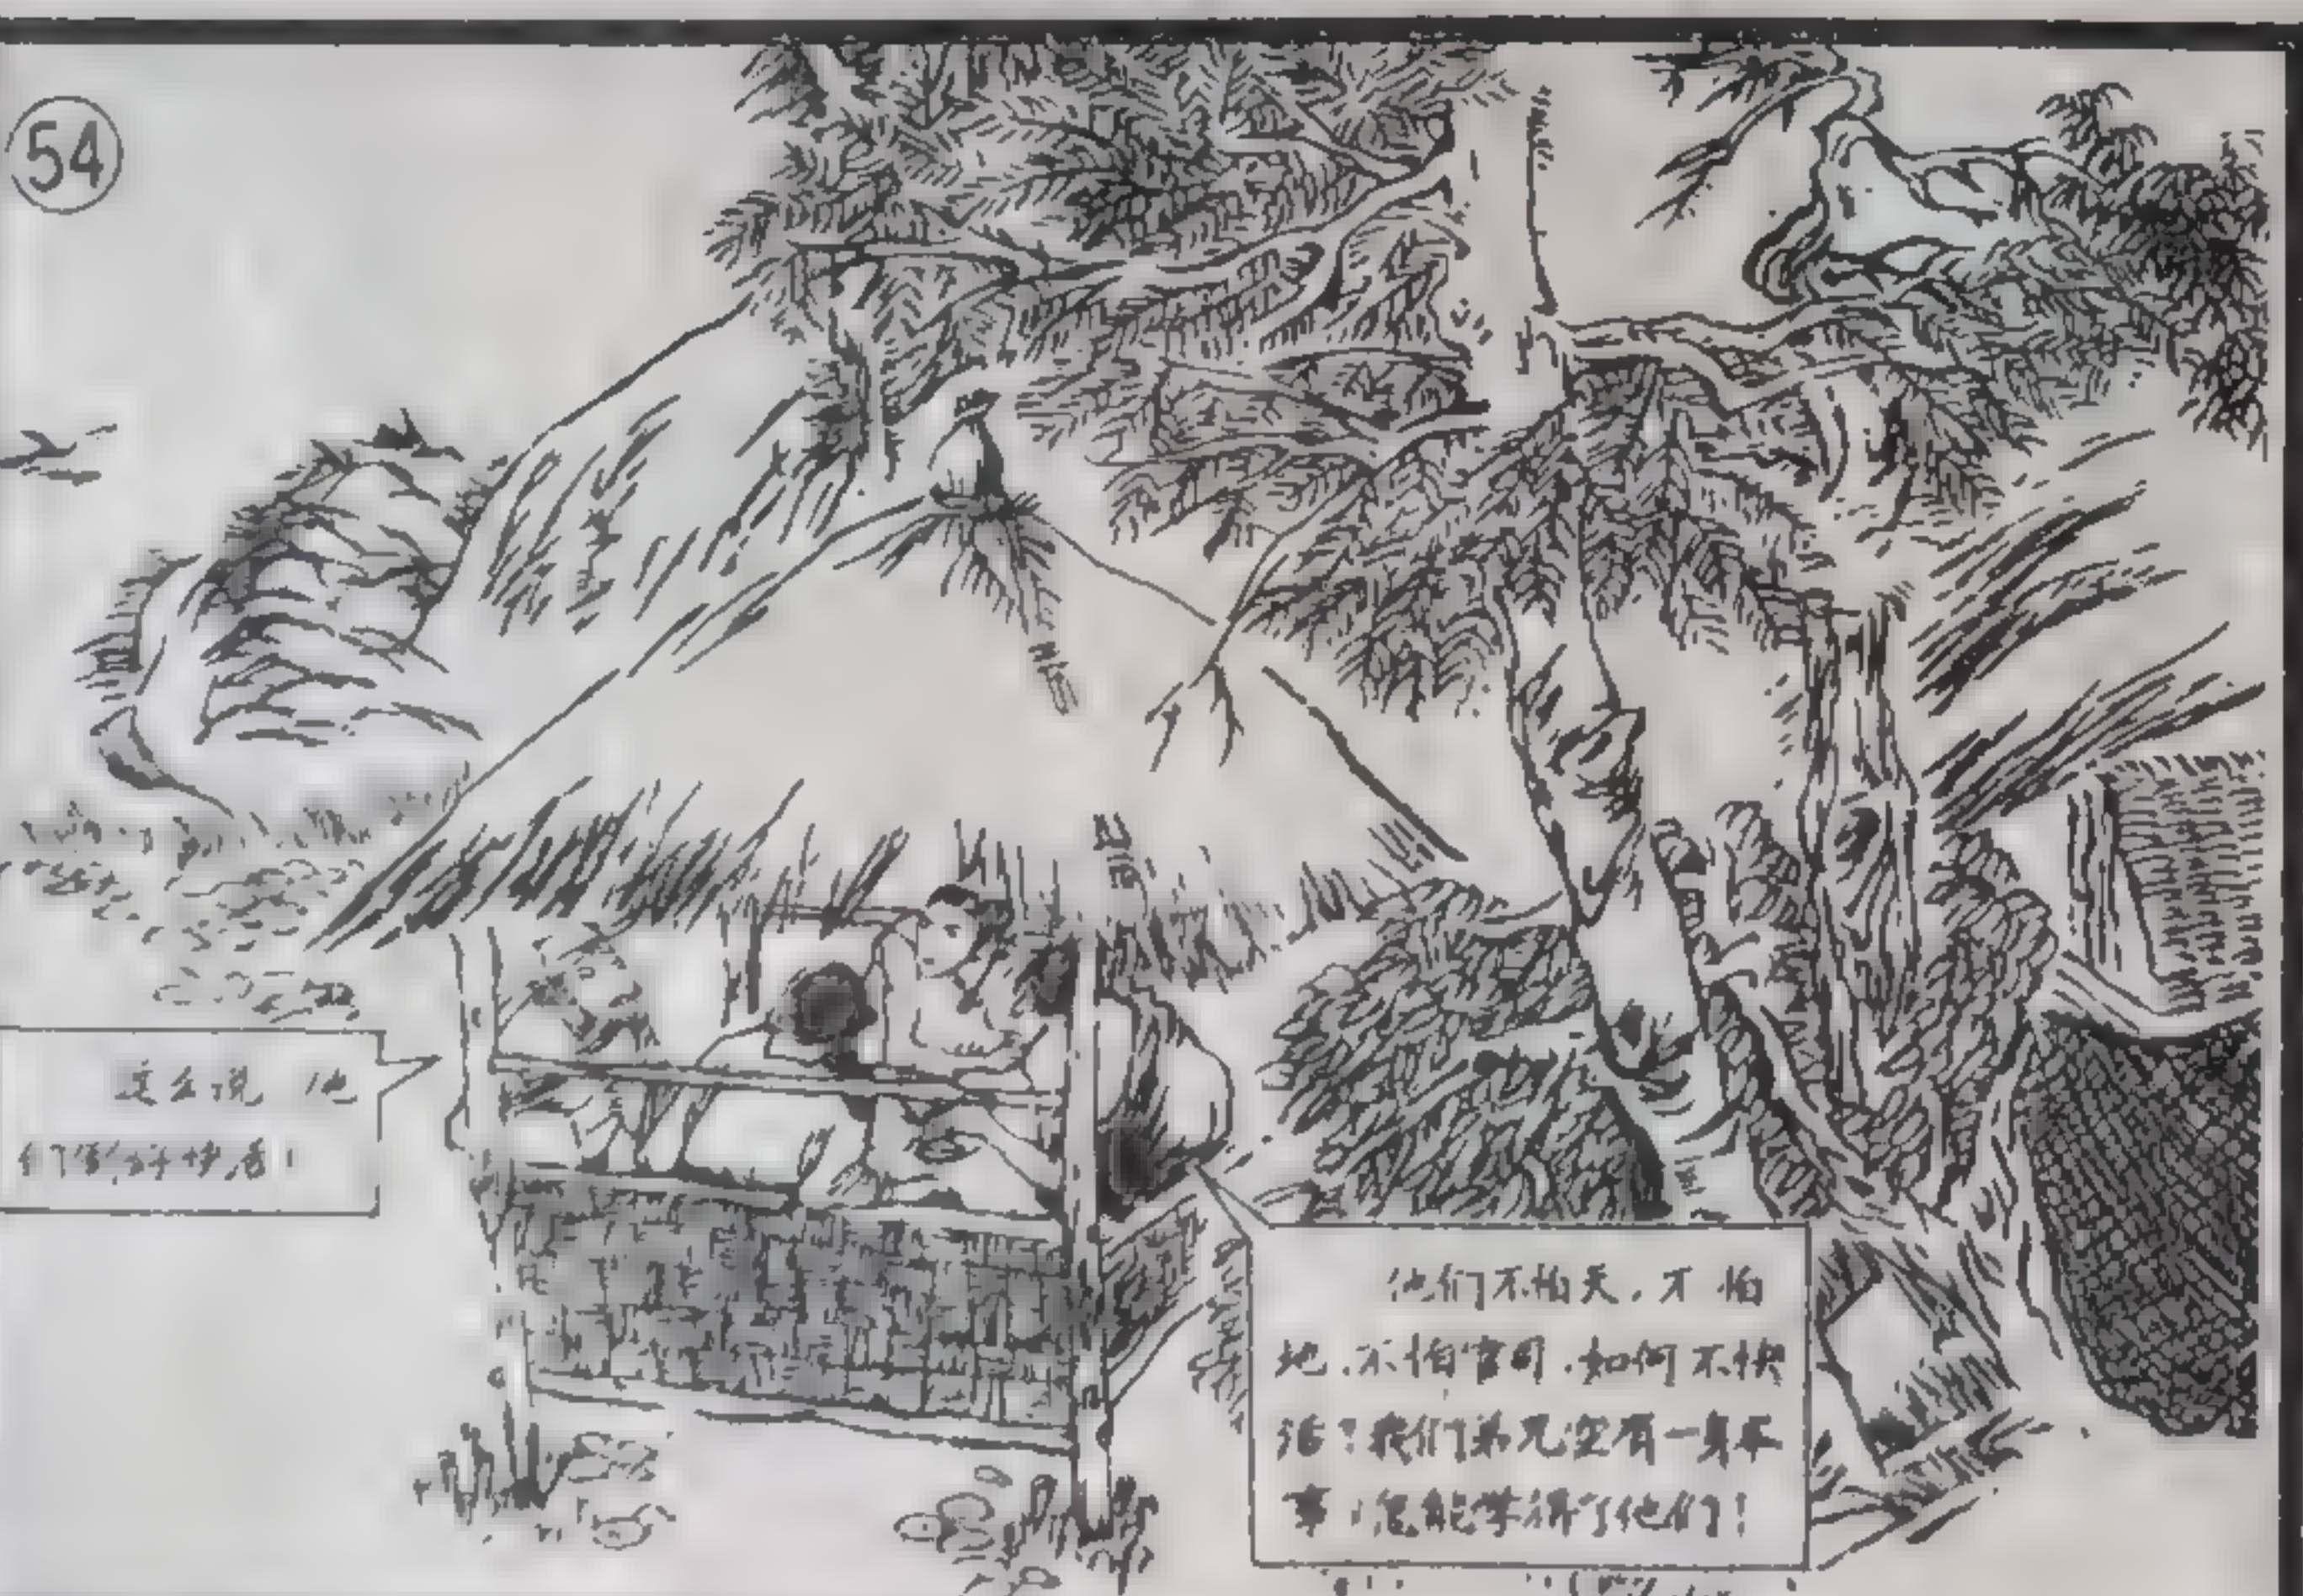 54
这么说 他
们到好快活!
他们不怕天,不怕
地,不怕官司,如何不快
活?我们弟兄空有一身本
事,怎能学得了他们!